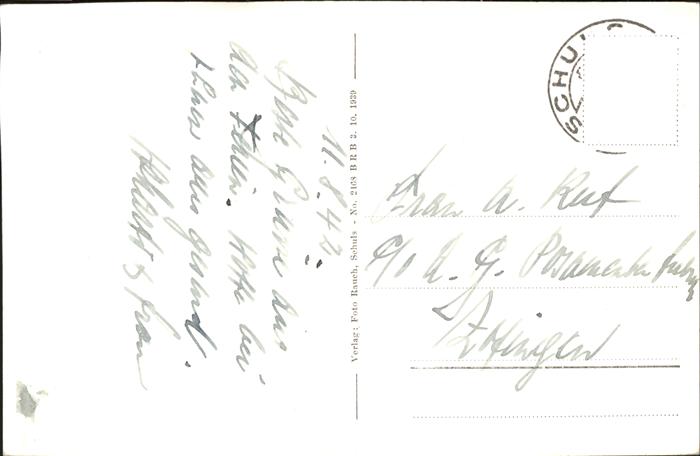 11.8.42.
Beste Grüsse aus
den Ferien. Hoffe bei
Ihnen alles gesund.
& Frau
Verlag: Foto Rauch, Schuls - No. 2168 B R B 3. 10. 1939
SCHUL
Frau A. Ruf
c/o A. G. Posamenten
Zofingen